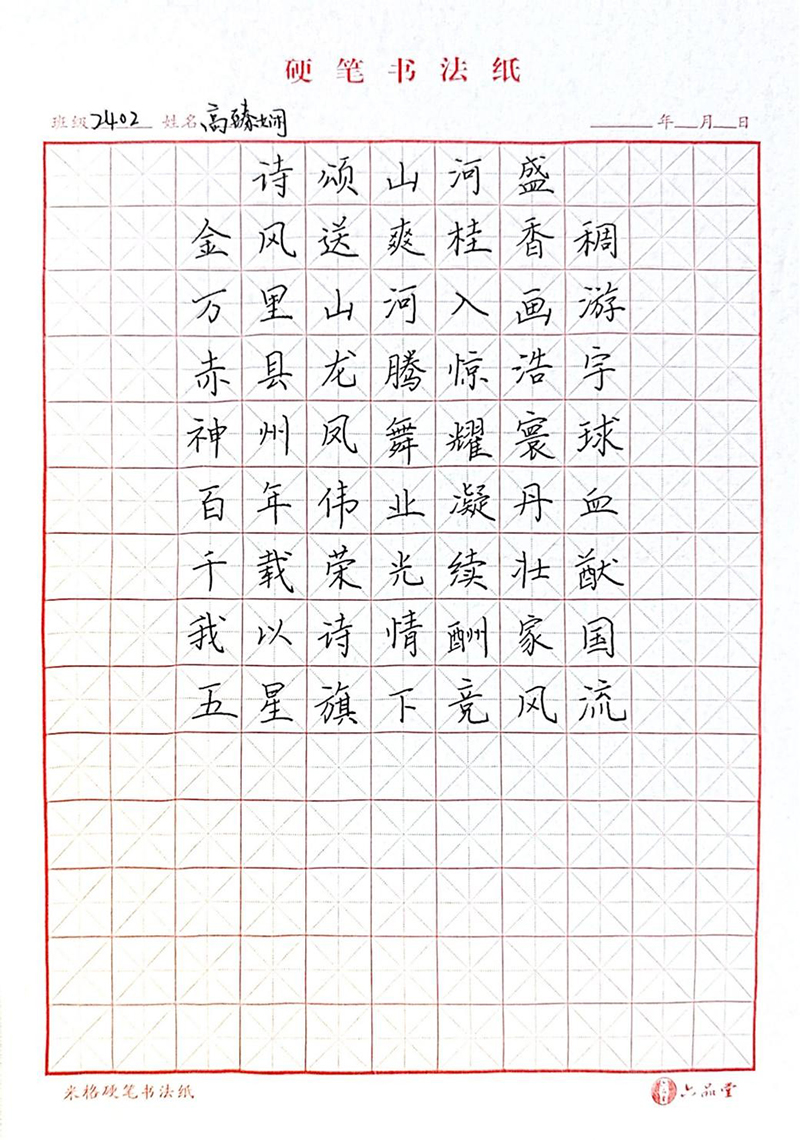 硬笔书法纸
班级2402 姓名高臻娴 年 月 日
诗颂山河盛
金风送爽桂香稠
万里山河入画游
赤县龙腾惊浩宇
神州凤舞耀寰球
百年伟业凝丹血
千载荣光续壮猷
我以诗情酬家国
五星旗下竞风流
米格硬笔书法纸 六品堂